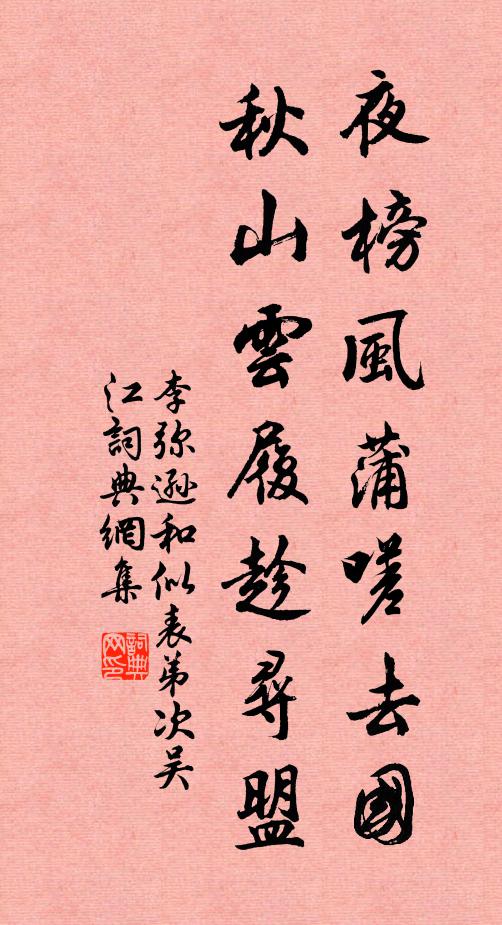 夜榜風蒲嗟去國
秋山雲履趁尋盟
李弥遜和似表弟次吴
江詞典網集
詞典
网印